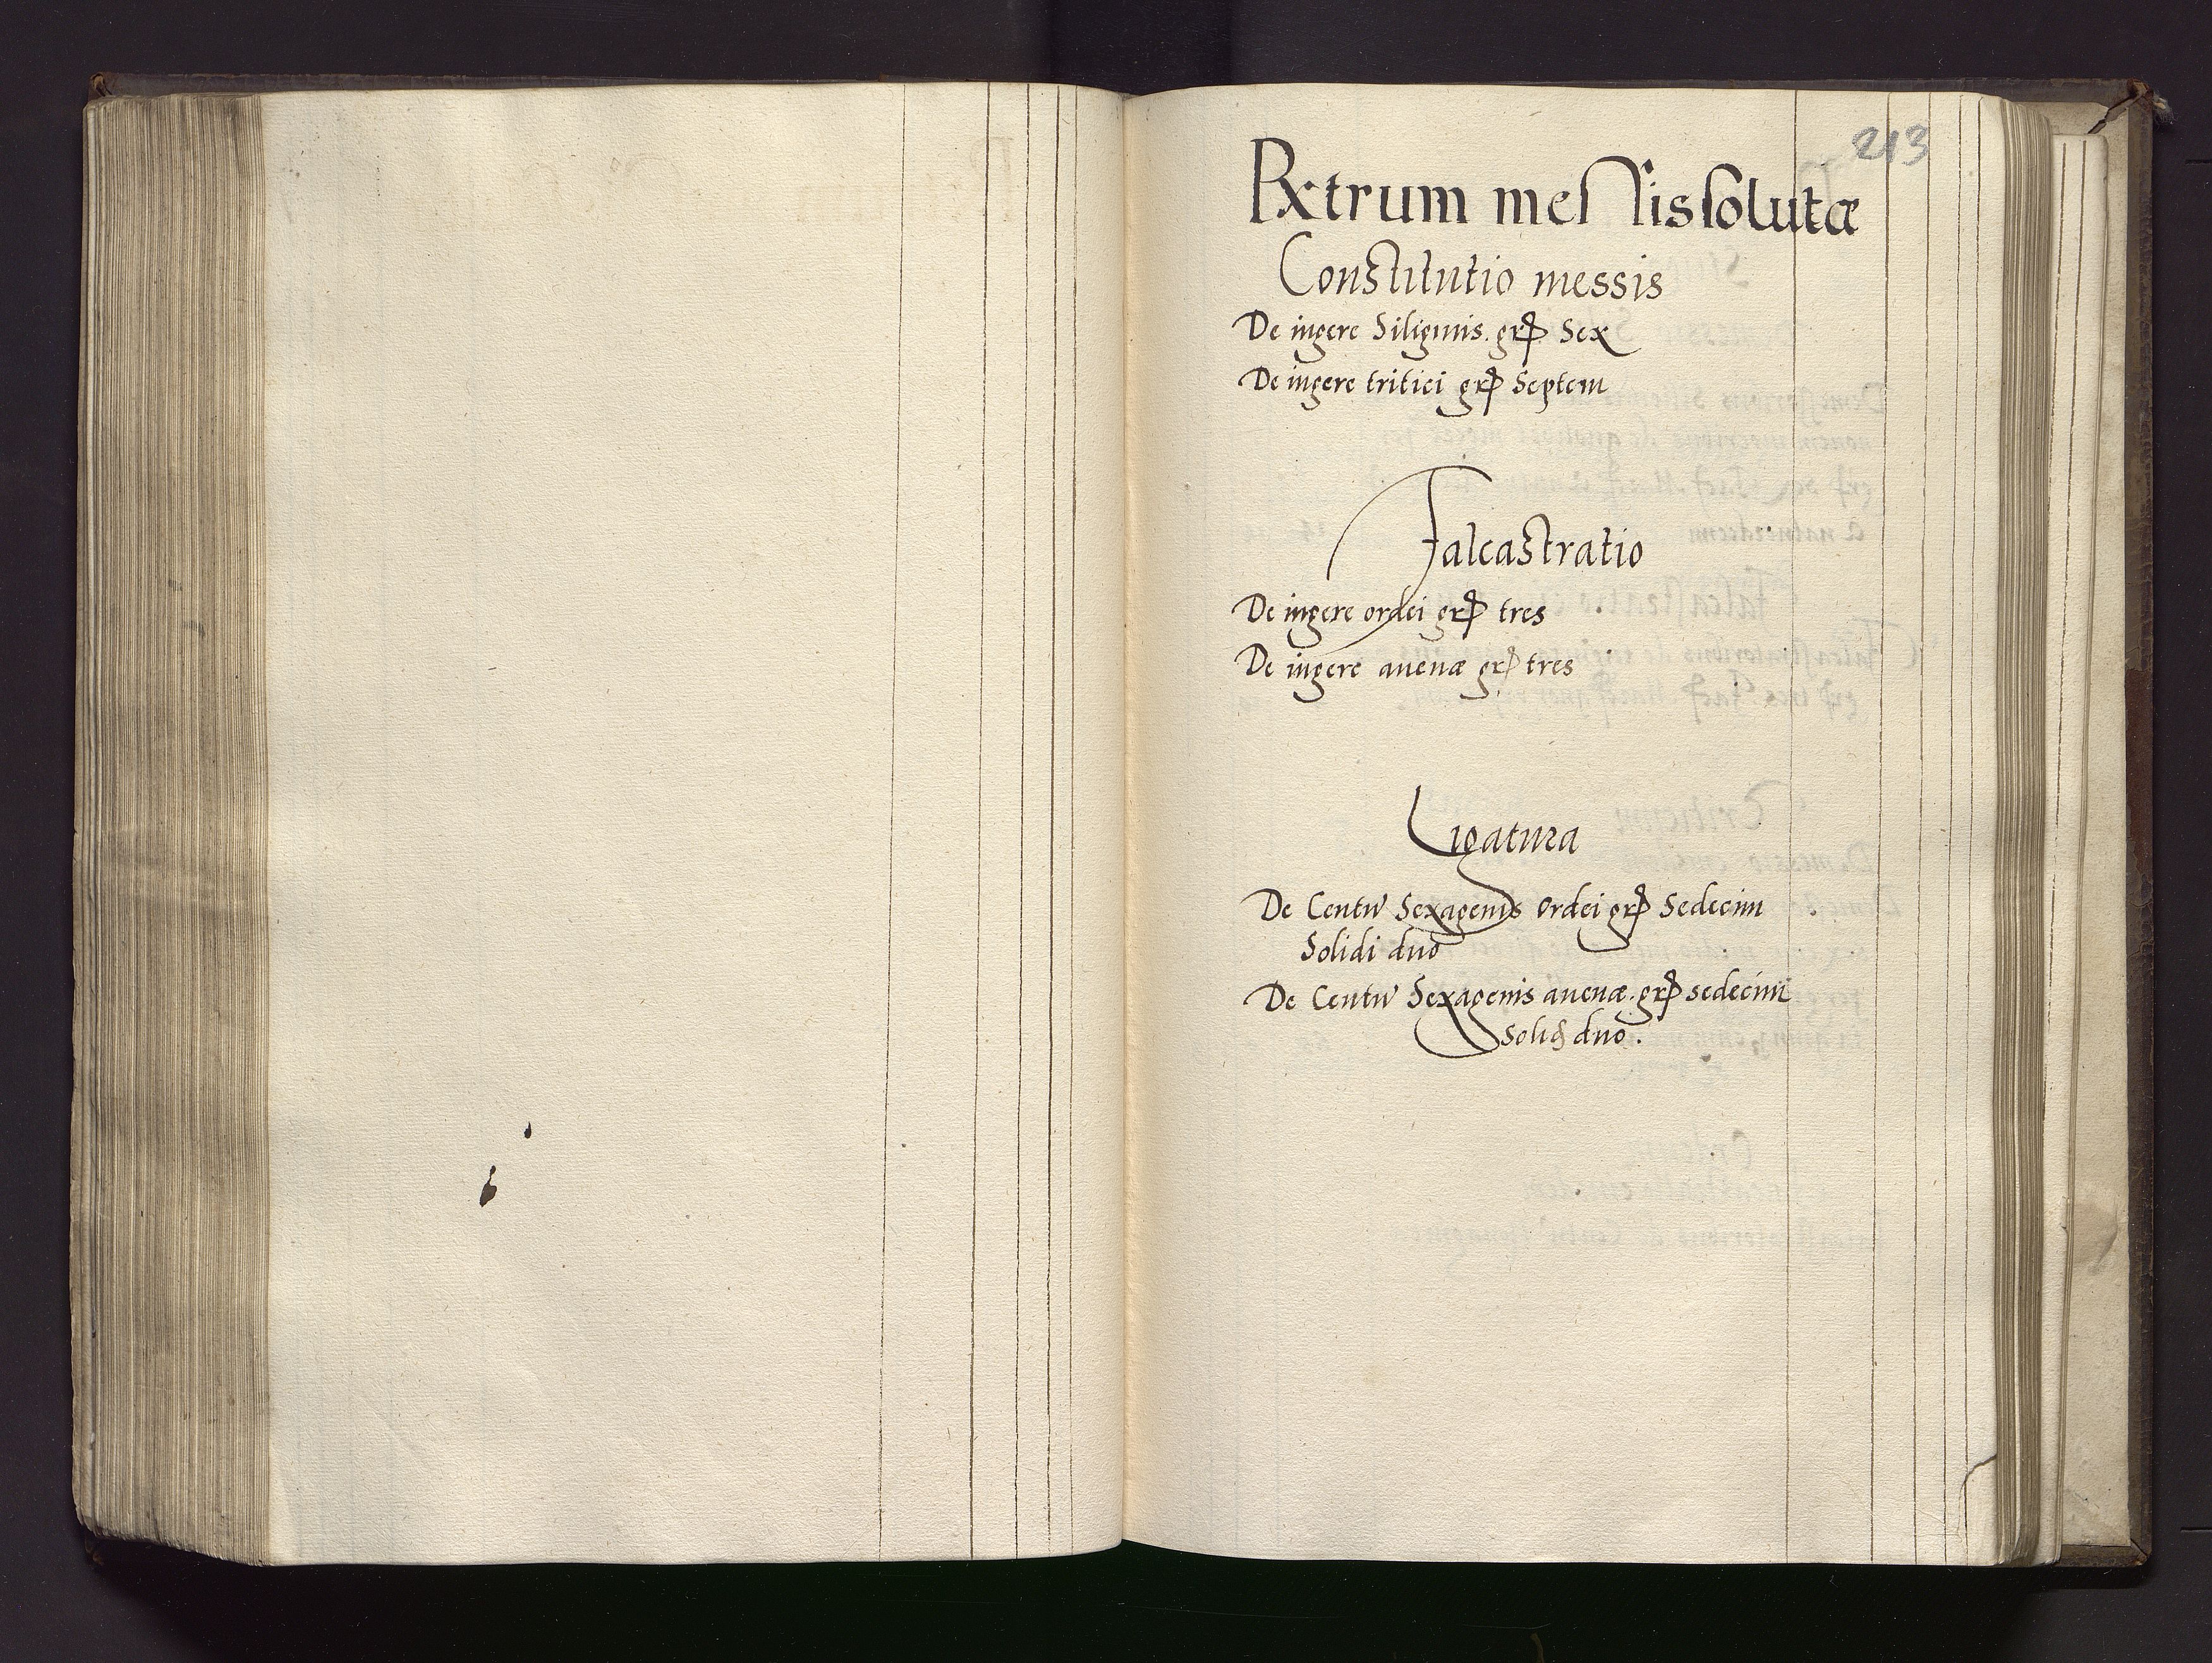 213
Rxtrum messis solutæ
Constitutio messis
De iugere Siliginis. grꝭ Sex
De iugere tritici grꝭ Septem
Falcastratio
De iugere ordei grꝭ tres
De iugere auenæ grꝭ tres
Ligatura
De Centu Sexagenis Ordei grꝭ Sedecim
Solidi duo
De Centu Sexagenis auenæ. grꝭ sedecim
Solid duo.